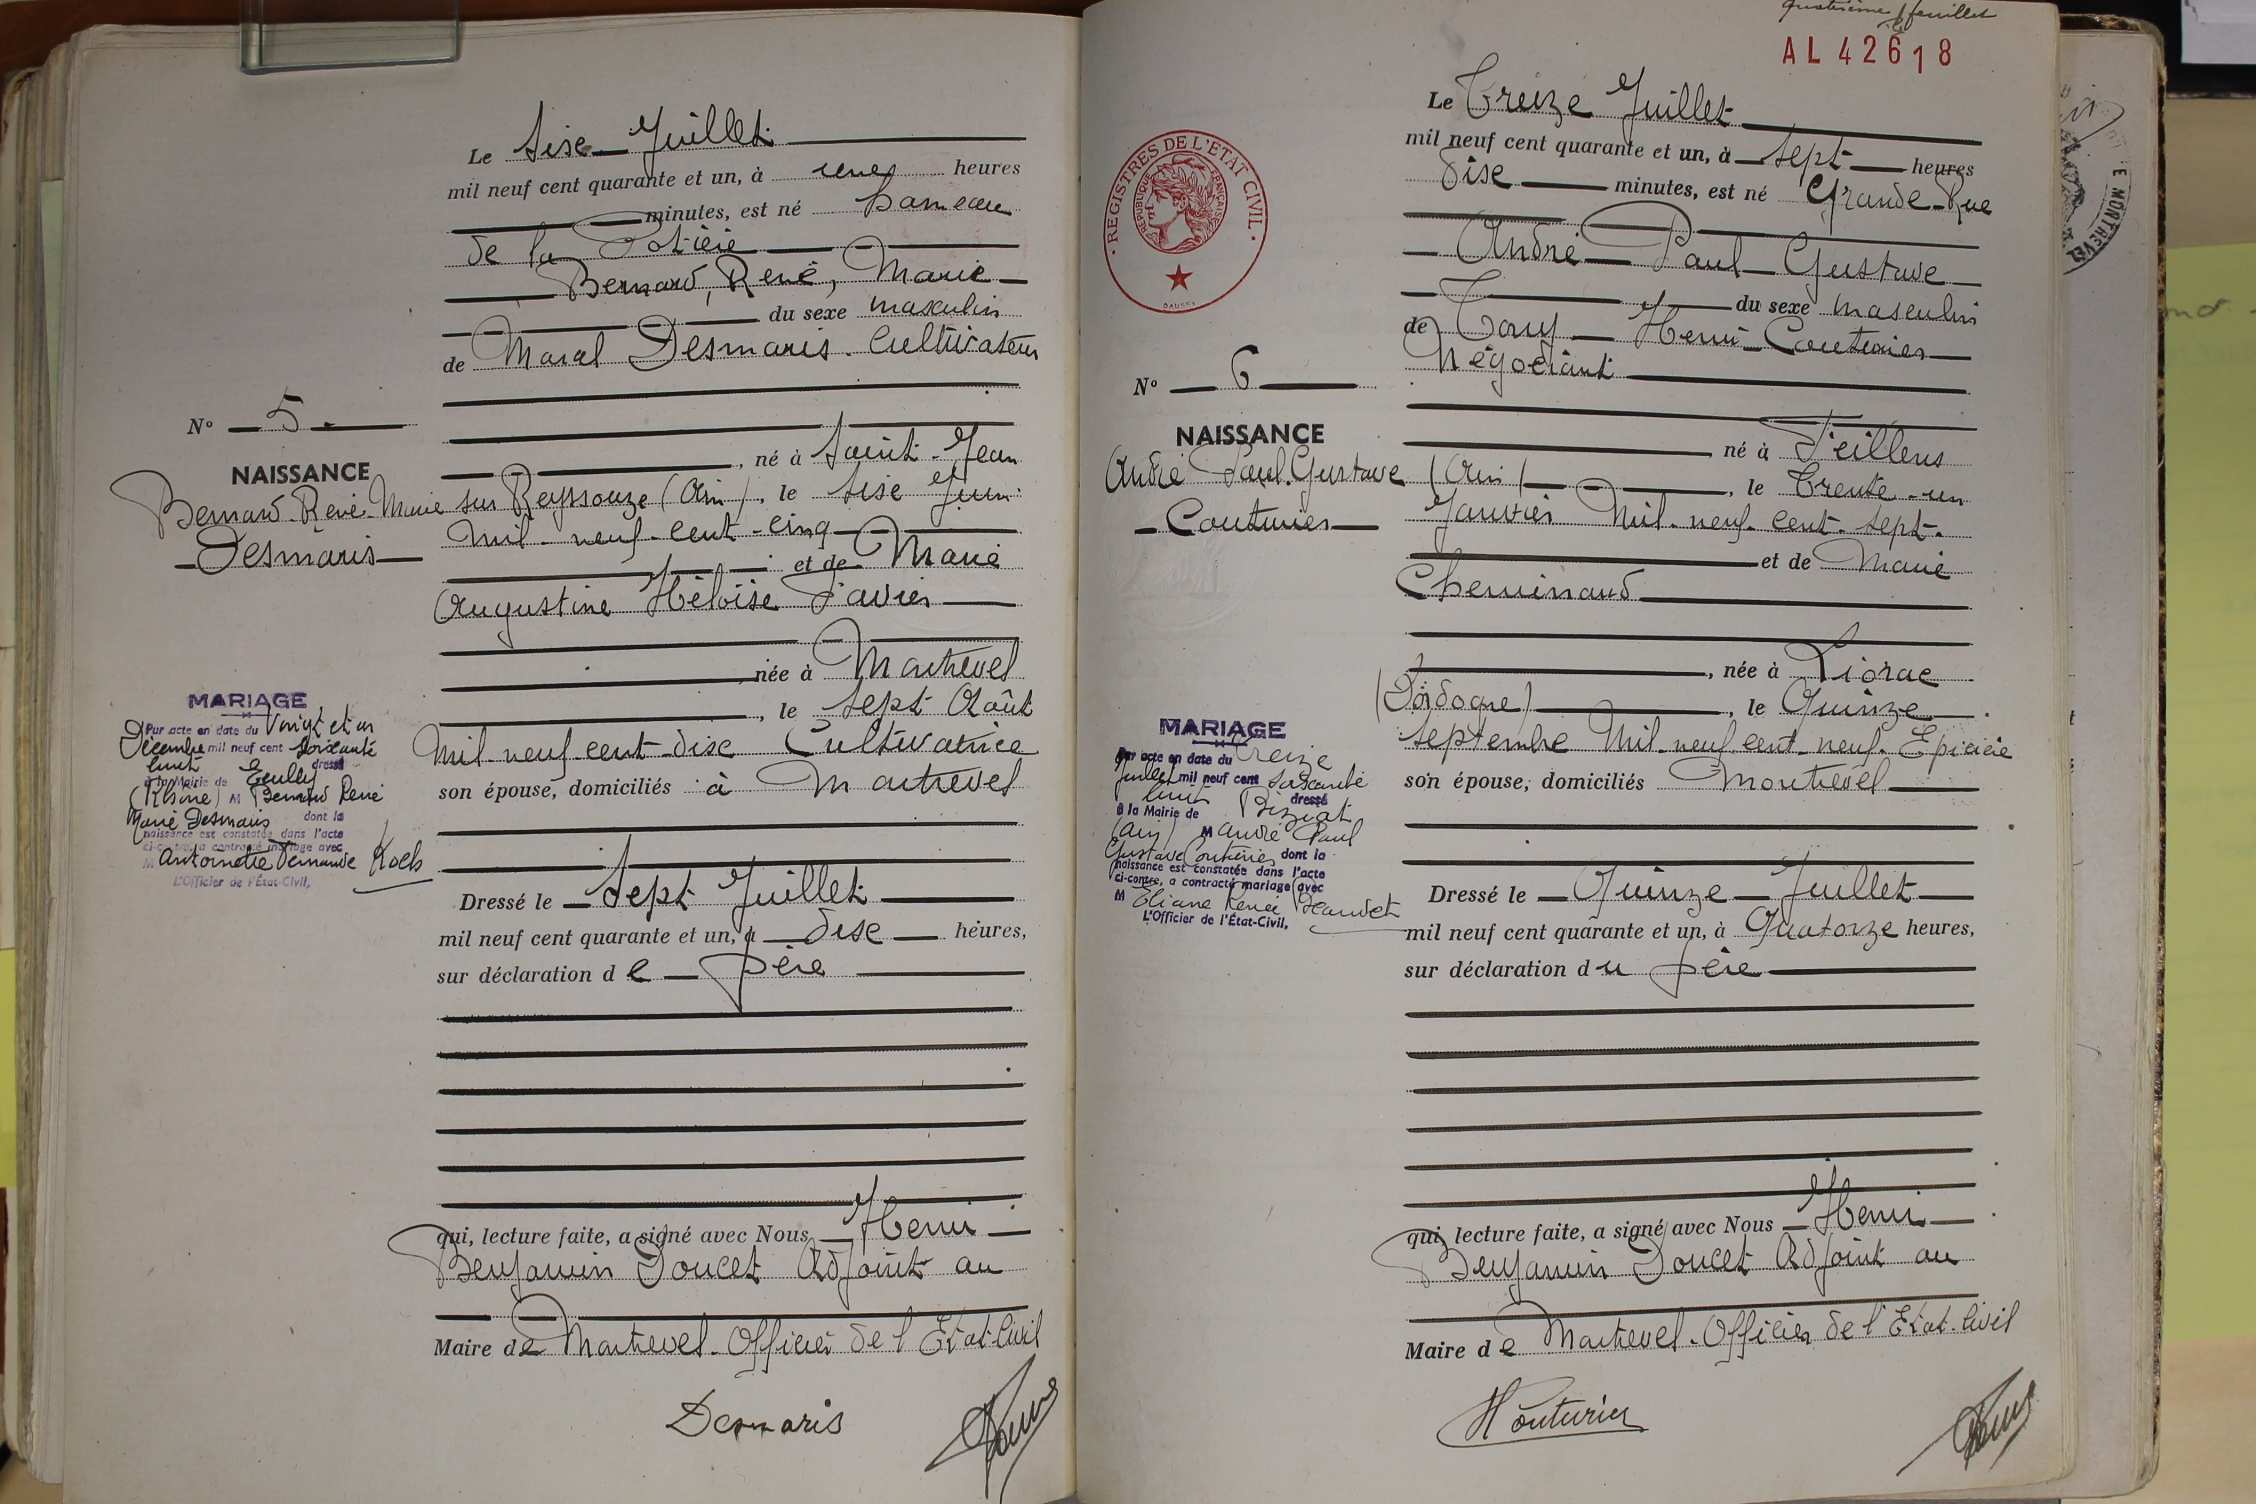 Le Sise Juillet
mil neuf cent quarante et un, à une heures
minutes, est né hameau
de la Potière
Bernard, René, Marie
du sexe masculin
de Marcel Desmaris. Cultivateur
N° 5
NAISSANCE
Bernard. René. Marie
Desmaris
, né à Saint. Jean
sur Reyssouze (Ain), le sise Juin
mil neuf cent cinq
et de Marie
Augustine Héloïse Favier
née à Montrevel
, le sept Août
mil neuf cent dise Cultivatrice
son épouse, domiciliés à Montrevel
MARIAGE
Par acte en date du Vingt et un
Décembre mil neuf cent soixante
huit dressé
à la Mairie de Ecully
(Rhône) M Bernard René
Marie Desmaris dont la
naissance est constatée dans l'acte
ci-contre, a contracté mariage avec
M Antoinette Fernande Koch
L'Officier de l'État-Civil,
Dressé le Sept Juillet
mil neuf cent quarante et un, à dise heures,
sur déclaration de père
qui, lecture faite, a signé avec Nous Henri
Benjamin Doucet Adjoint au
Maire de Montrevel. Officier de l'Etat. Civil
Desmaris
quatrième feuillet
AL 42618
Le Treize Juillet
mil neuf cent quarante et un, à sept heures
dise minutes, est né Grande Rue
André Paul Gustave
du sexe masculin
de Tony Henri Couturier
Négociant
REGISTRES DE L'ETAT CIVIL
REPUBLIQUE FRANÇAISE
N° 6
NAISSANCE
André Paul. Gustave
Couturier
né à Feillens
(Ain), le Trente-un
Janvier Mil-neuf-cent-sept.
et de Marie
Cheminaud
, née à Liorac
(Dordogne), le Quinze
septembre Mil-neuf-cent-neuf. Epicière
son épouse, domiciliés Montrevel
MARIAGE
Par acte en date du Treize
Juillet mil neuf cent soixante
huit dressé
à la Mairie de Biziat
(Ain) M André Paul
Gustave Couturier dont la
naissance est constatée dans l'acte
ci-contre, a contracté mariage avec
M Eliane Renée
L'Officier de l'État-Civil,
Dressé le Quinze Juillet
mil neuf cent quarante et un, à Quatorze heures,
sur déclaration du père
qui, lecture faite, a signé avec Nous Henri
Benjamin Doucet Adjoint au
Maire de Montrevel. Officier de l'Etat. Civil
H Couturier